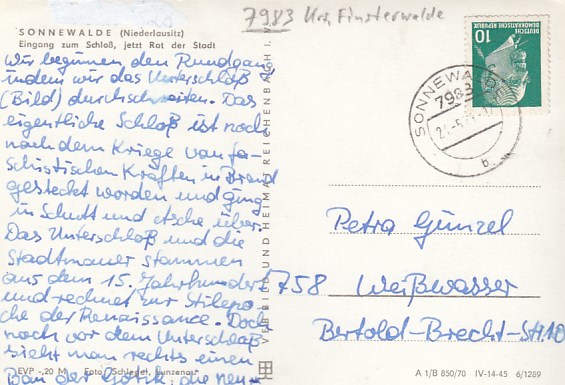 SONNEWALDE (Niederlausitz)
Eingang zum Schloß, jetzt Rat der Stadt
7983 Krs. Finsterwalde
DEUTSCHE
DEMOKRATISCHE REPUBLIK
10
SONNEWALDE
7983
b
Wir beginnen den Rundgang
indem wir das Unterschloß
(Bild) durchschreiten. Das
eigentliche Schloß ist noch
nach dem Kriege van fa-
schistischen Kräften in Brand
gesteckt worden und ging
in Schutt und Asche über.
Das Unterschloß und die
Stadtmauer stammen
aus dem 15. Jahrhundert
und rechnet zur Stilepo
che der Renaissance. Doch
noch vor dem Unterschloß
sieht man rechts einen
Bau der Gotik, die neu-
EVP -,20 M Foto Schlegel, Lunzenau
VERBILD UND HEIMAT REICHENBACH I. V.
Petra Günzel
758 Weißwasser
Bertold-Brecht-Str. 10
A 1/B 850/70 IV-14-45 6/1289